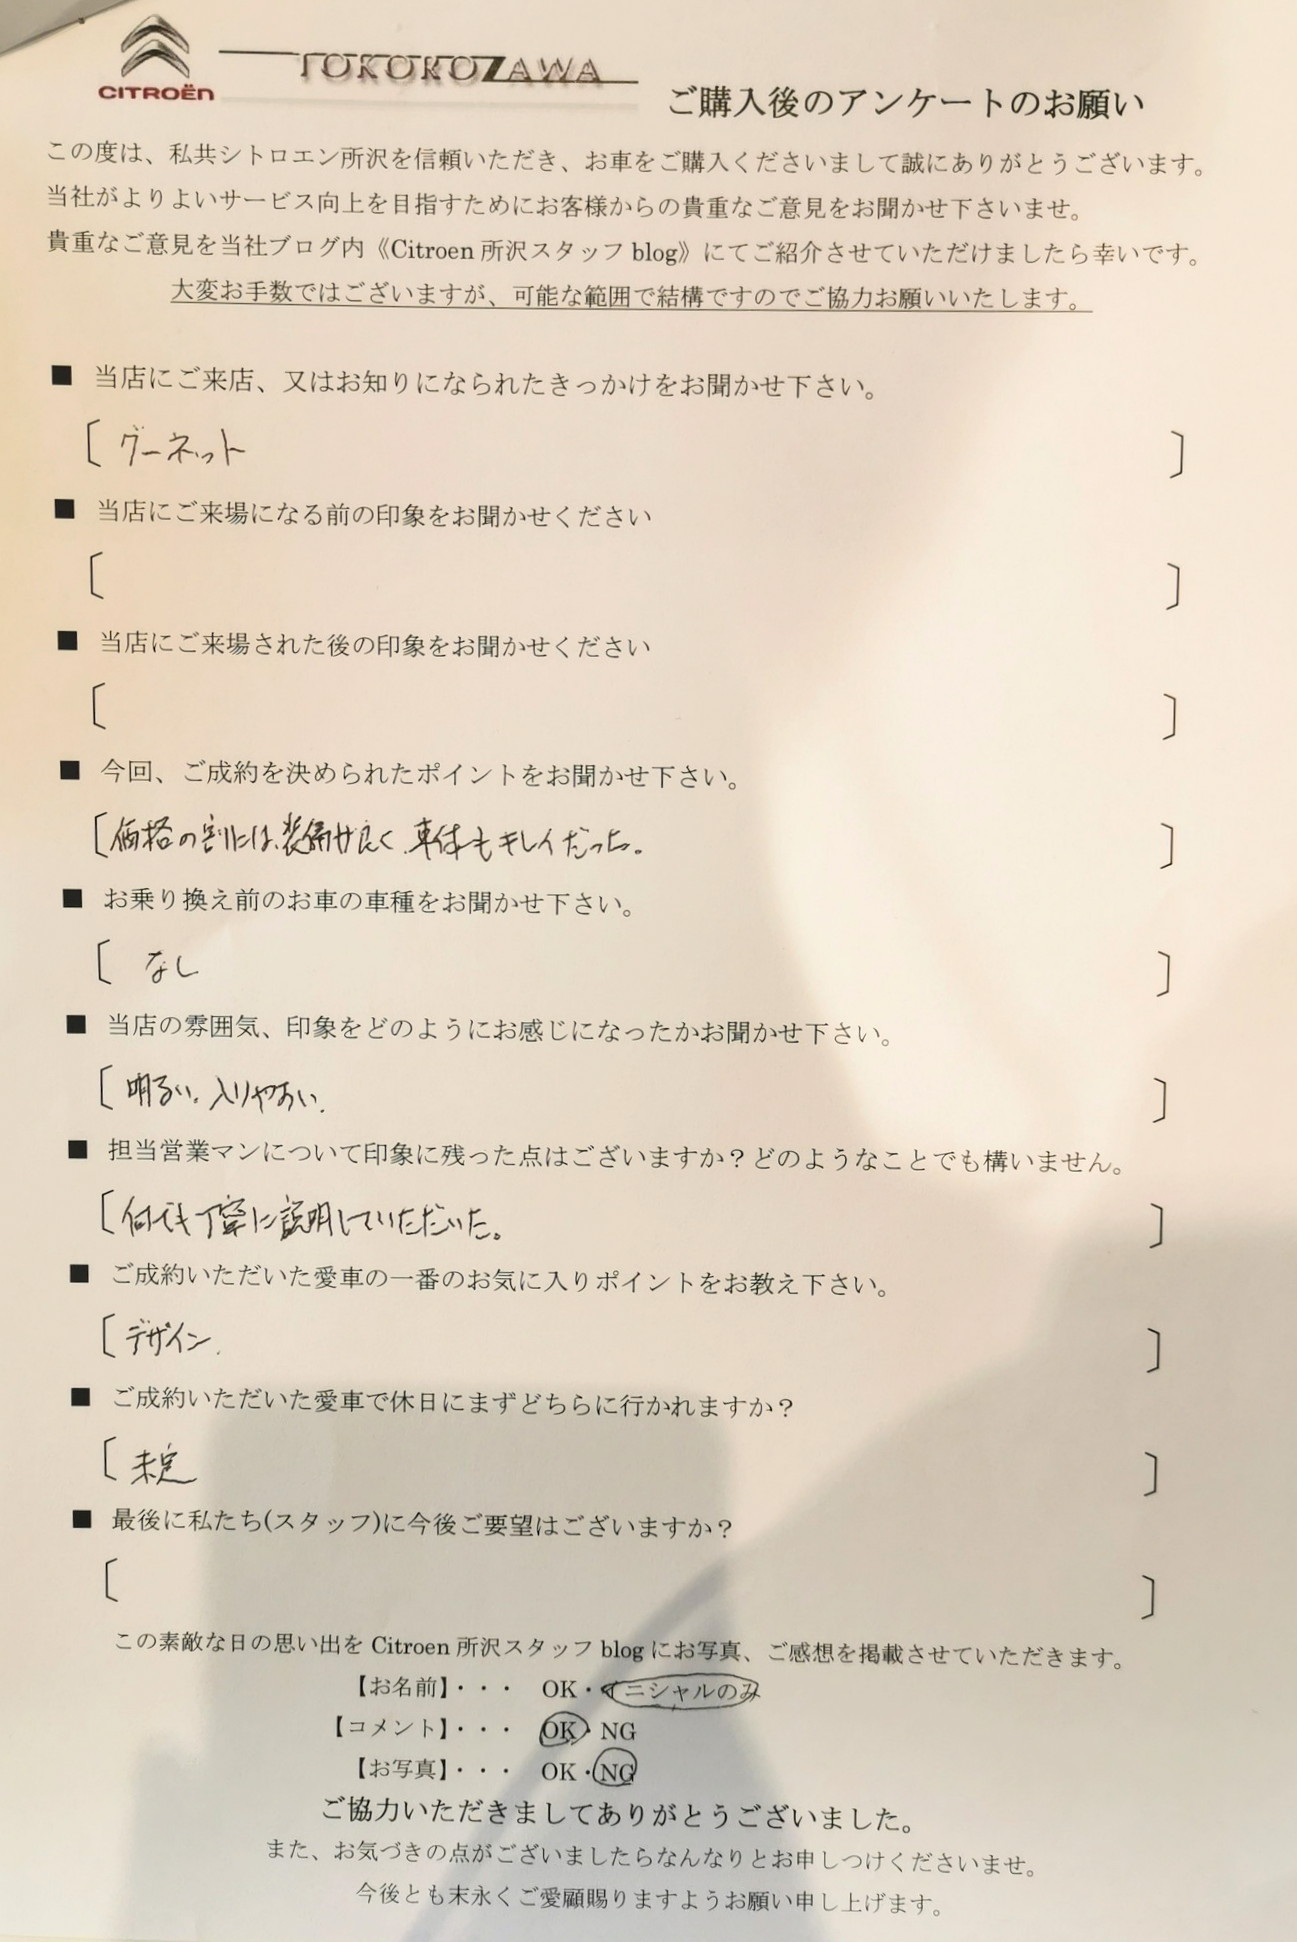 CITROËN
TOKOROZAWA
ご購入後のアンケートのお願い
この度は、私共シトロエン所沢を信頼いただき、お車をご購入くださいまして誠にありがとうございます。
当社がよりよいサービス向上を目指すためにお客様からの貴重なご意見をお聞かせ下さいませ。
貴重なご意見を当社ブログ内《Citroen 所沢スタッフ blog》にてご紹介させていただけましたら幸いです。
大変お手数ではございますが、可能な範囲で結構ですのでご協力お願いいたします。
■ 当店にご来店、又はお知りになられたきっかけをお聞かせ下さい。
〔 グーネット 〕
■ 当店にご来場になる前の印象をお聞かせください
〔 〕
■ 当店にご来場された後の印象をお聞かせください
〔 〕
■ 今回、ご成約を決められたポイントをお聞かせ下さい。
〔 価格の割には、装備が良く、車体もキレイだった。 〕
■ お乗り換え前のお車の車種をお聞かせ下さい。
〔 なし 〕
■ 当店の雰囲気、印象をどのようにお感じになったかお聞かせ下さい。
〔 明るい。入りやすい。 〕
■ 担当営業マンについて印象に残った点はございますか？どのようなことでも構いません。
〔 何でも丁寧に説明していただいた。 〕
■ ご成約いただいた愛車の一番のお気に入りポイントをお教え下さい。
〔 デザイン. 〕
■ ご成約いただいた愛車で休日にまずどちらに行かれますか？
〔 未定 〕
■ 最後に私たち(スタッフ)に今後ご要望はございますか？
〔 〕
この素敵な日の思い出を Citroen 所沢スタッフ blog にお写真、ご感想を掲載させていただきます。
【お名前】・・・ OK・イニシャルのみ
【コメント】・・・ OK・NG
【お写真】・・・ OK・NG
ご協力いただきましてありがとうございました。
また、お気づきの点がございましたらなんなりとお申しつけくださいませ。
今後とも末永くご愛顧賜りますようお願い申し上げます。